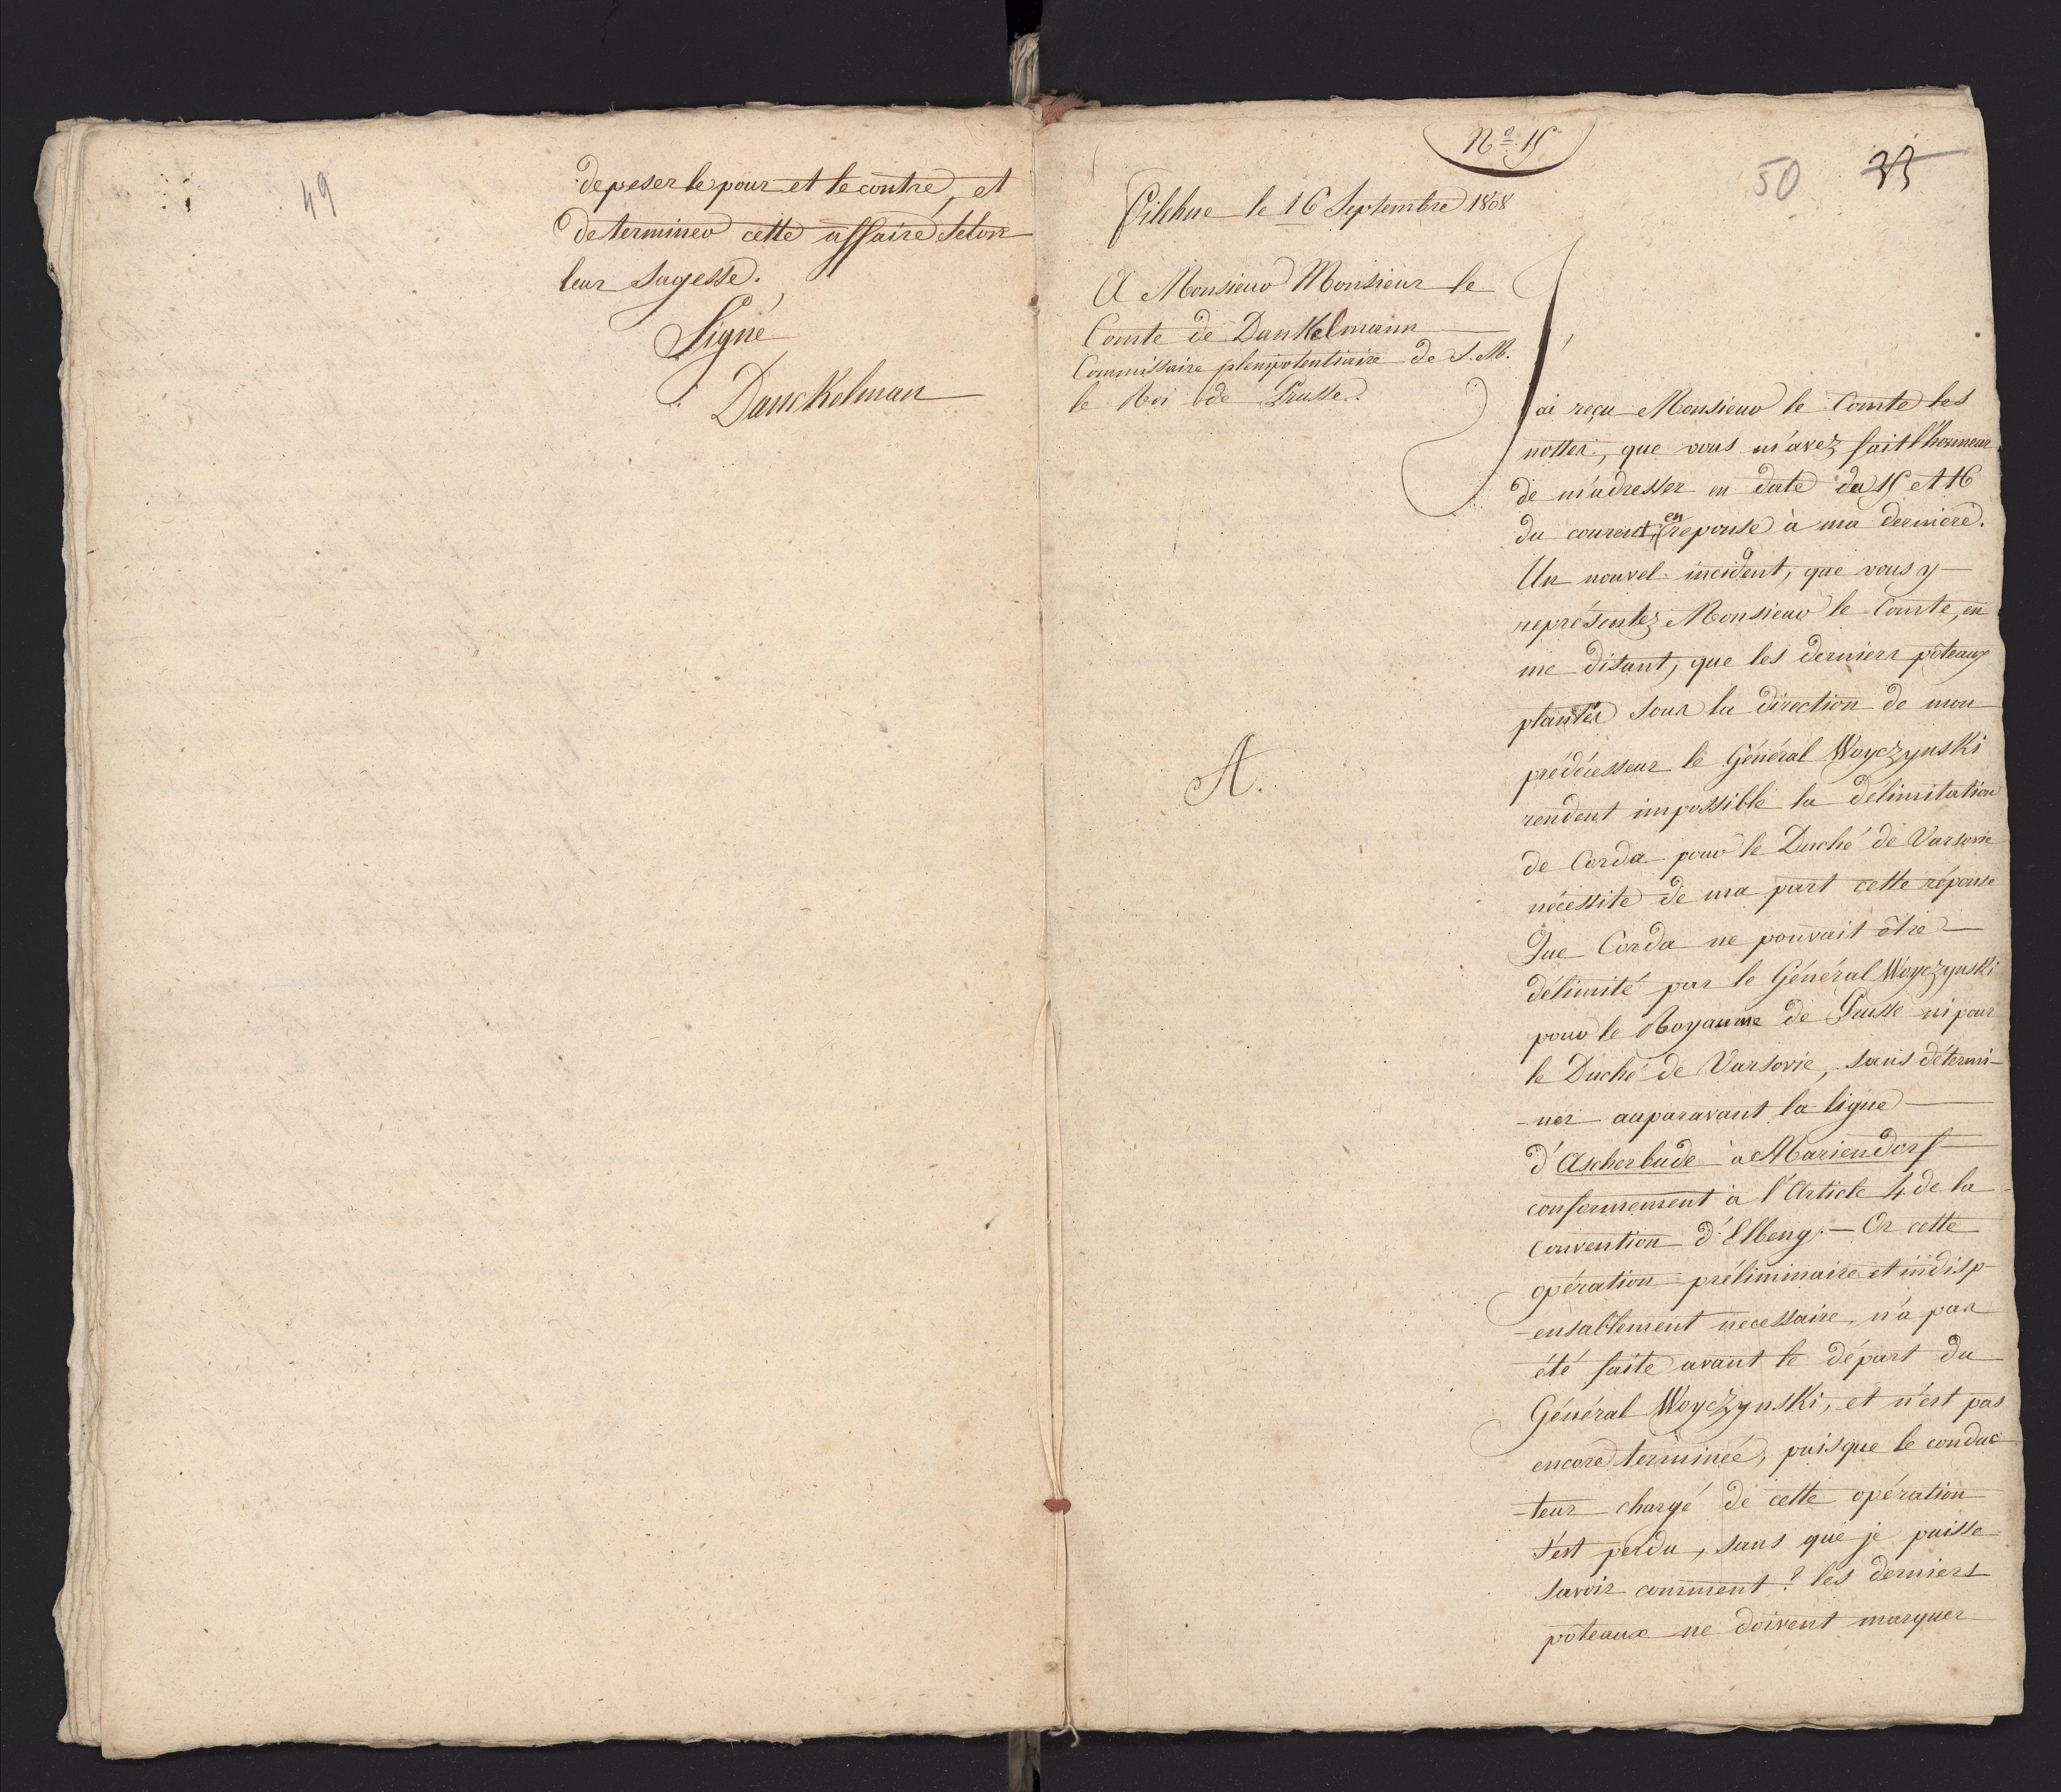 49
de peser le pour et le contre, et
determiner cette affaire selon
leur sagesse.
Signé
Danckelman
Nº 15
50 33
Filehne le 16 Septembre 1808
A Monsieur Monsieur le
Comte de Dankelmann
Commissaire plenipotentiaire de S. M.
le Roi de Prusse.
J'ai reçu Monsieur le Comte les
nottes, que vous m'avez fait l'honneur
de m'adresser en date du 15 et 16
du courent, en reponse à ma derniere.
Un nouvel incident, que vous y
représentez Monsieur le Comte, en
me disant, que les derniers pôteaux
plantés sous la direction de mon
A.
prédécesseur le Général Woyczynski
rendent impossible la délimitation
de Corda pour le Duché de Varsovie
nécessite de ma part cette réponse
Que Corda ne pouvait être
délimité par le Général Woyczynski
pour le Royaume de Prusse ni pour
le Duché de Varsovie, sans détermi-
-ner auparavant la ligne
d'Ascherbude à Mariendorf
conformement à l'Article 4 de la
Convention d'Elbeng. — Or cette
opération préliminaire et indisp-
-ensablement necessaire, n'a pas
été faite avant le départ du
Général Woyczynski, et n'est pas
encore terminée, puisque le conduc
-teur chargé de cette opération
s'est perdu, sans que je puisse
savoir comment? les derniers
pôteaux ne doivent marquer